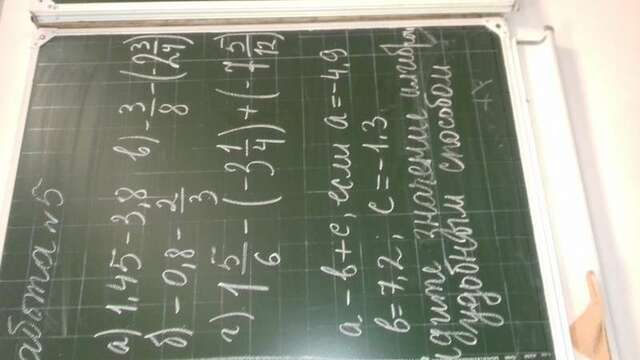 абота №5
а) 1,45 - 3,8 в) - 3/8 - (-2 3/4)
б) - 0,8 - 2/3
г) 1 5/6 - (-3 1/4) + (-7 5/12)
a - в + c, если a = -4,9
в = 7,2; c = -1,3
дите значение алгебраи
удобным способом